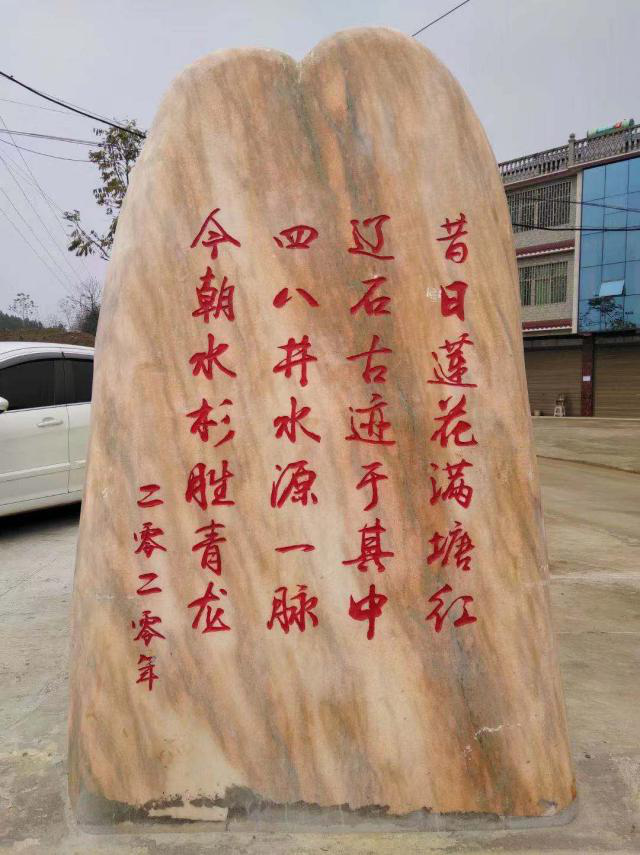 昔日莲花满塘红
辽石古迹于其中
四八井水源一脉
今朝水杉胜青龙
二零二零年